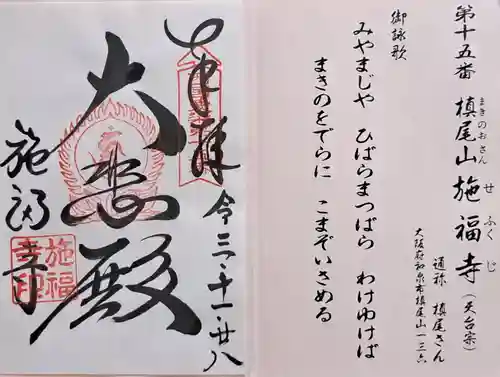 第十五番 槙尾山 施福寺（天台宗）
まきのおさん せふくじ
通称 槙尾さん
大阪府和泉市槙尾山一三六
御詠歌
みやまじや ひばらまつばら わけゆけば
まきのをでらに こまぞいさめる
奉拝
令三・十一・廿八
大悲殿
施福寺
施福
寺印